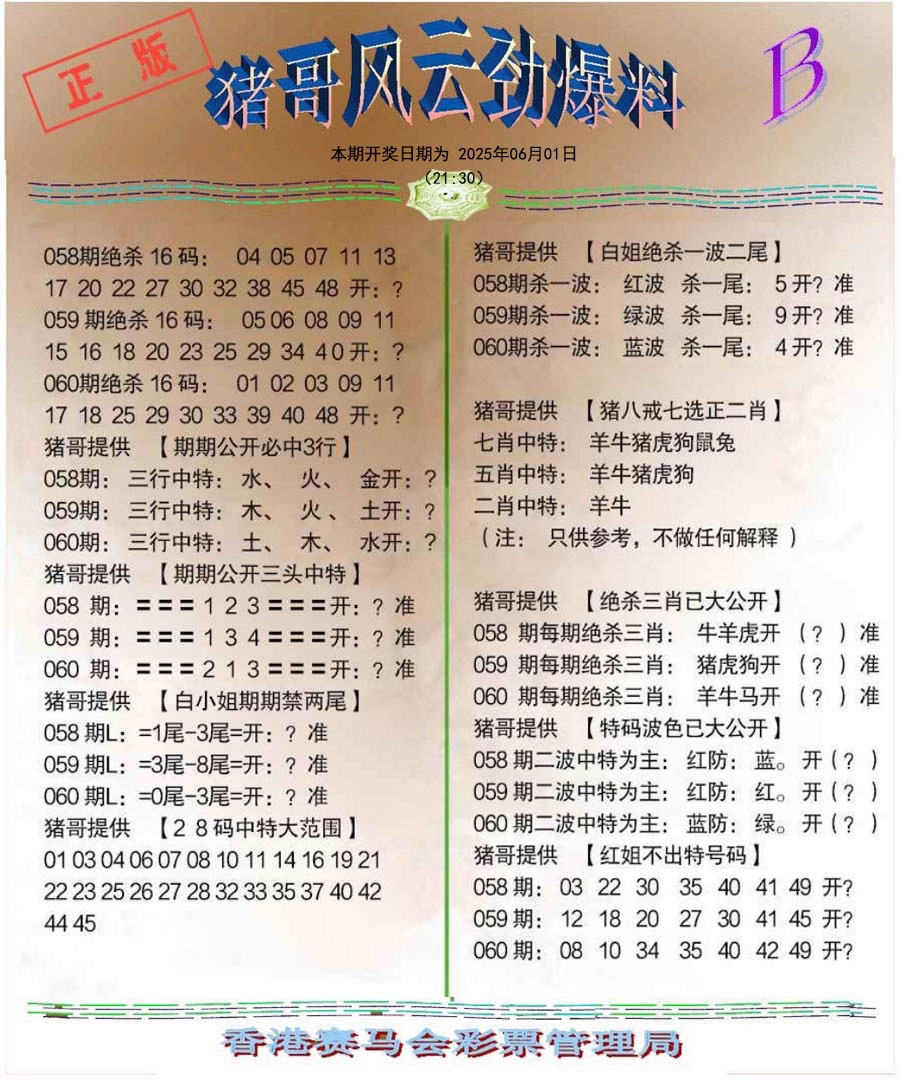 正版
猪哥风云劲爆料
B
本期开奖日期为 2025年06月01日
(21:30)
058期绝杀16码： 04 05 07 11 13
17 20 22 27 30 32 38 45 48 开：？
059期绝杀16码： 05 06 08 09 11
15 16 18 20 23 25 29 34 40开：？
060期绝杀16码： 01 02 03 09 11
17 18 25 29 30 33 39 40 48 开：？
猪哥提供 【期期公开必中3行】
058期： 三行中特： 水、 火、 金开：？
059期： 三行中特： 木、 火、 土开：？
060期： 三行中特： 土、 木、 水开：？
猪哥提供 【期期公开三头中特】
058 期：===1 2 3===开：？准
059 期：===1 3 4===开：？准
060 期：===2 1 3===开：？准
猪哥提供 【白小姐期期禁两尾】
058期L：=1尾-3尾=开：？准
059期L：=3尾-8尾=开：？准
060期L：=0尾-3尾=开：？准
猪哥提供 【28码中特大范围】
01 03 04 06 07 08 10 11 14 16 19 21
22 23 25 26 27 28 32 33 35 37 40 42
44 45
猪哥提供 【白姐绝杀一波二尾】
058期杀一波： 红波 杀一尾： 5开？准
059期杀一波： 绿波 杀一尾： 9开？准
060期杀一波： 蓝波 杀一尾： 4开？准
猪哥提供 【猪八戒七选正二肖】
七肖中特： 羊牛猪虎狗鼠兔
五肖中特： 羊牛猪虎狗
二肖中特： 羊牛
（注： 只供参考，不做任何解释）
猪哥提供 【绝杀三肖已大公开】
058 期每期绝杀三肖： 牛羊虎开 （？）准
059 期每期绝杀三肖： 猪虎狗开 （？）准
060 期每期绝杀三肖： 羊牛马开 （？）准
猪哥提供 【特码波色已大公开】
058期二波中特为主： 红防： 蓝。开（？）
059期二波中特为主： 红防： 红。开（？）
060期二波中特为主： 蓝防： 绿。开（？）
猪哥提供 【红姐不出特号码】
058期： 03 22 30 35 40 41 49 开？
059期： 12 18 20 27 30 41 45 开？
060期： 08 10 34 35 40 42 49 开？
香港赛马会彩票管理局